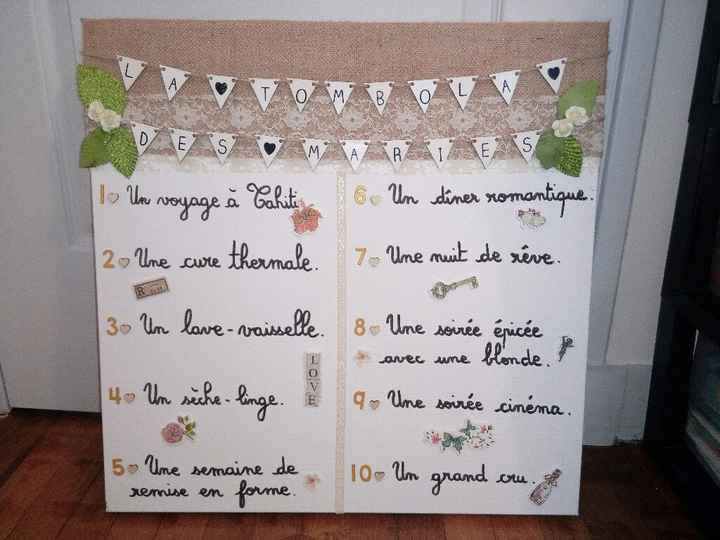 LA TOMBOLA
DES MARIES
1 Un voyage à Tahiti
2 Une cure thermale.
3 Un lave-vaisselle.
LOVE
4 Un sèche-linge.
5 Une semaine de
remise en forme.
6 Un dîner romantique.
7 Une nuit de rêve.
8 Une soirée épicée
avec une blonde.
9 Une soirée cinéma.
10 Un grand cru.